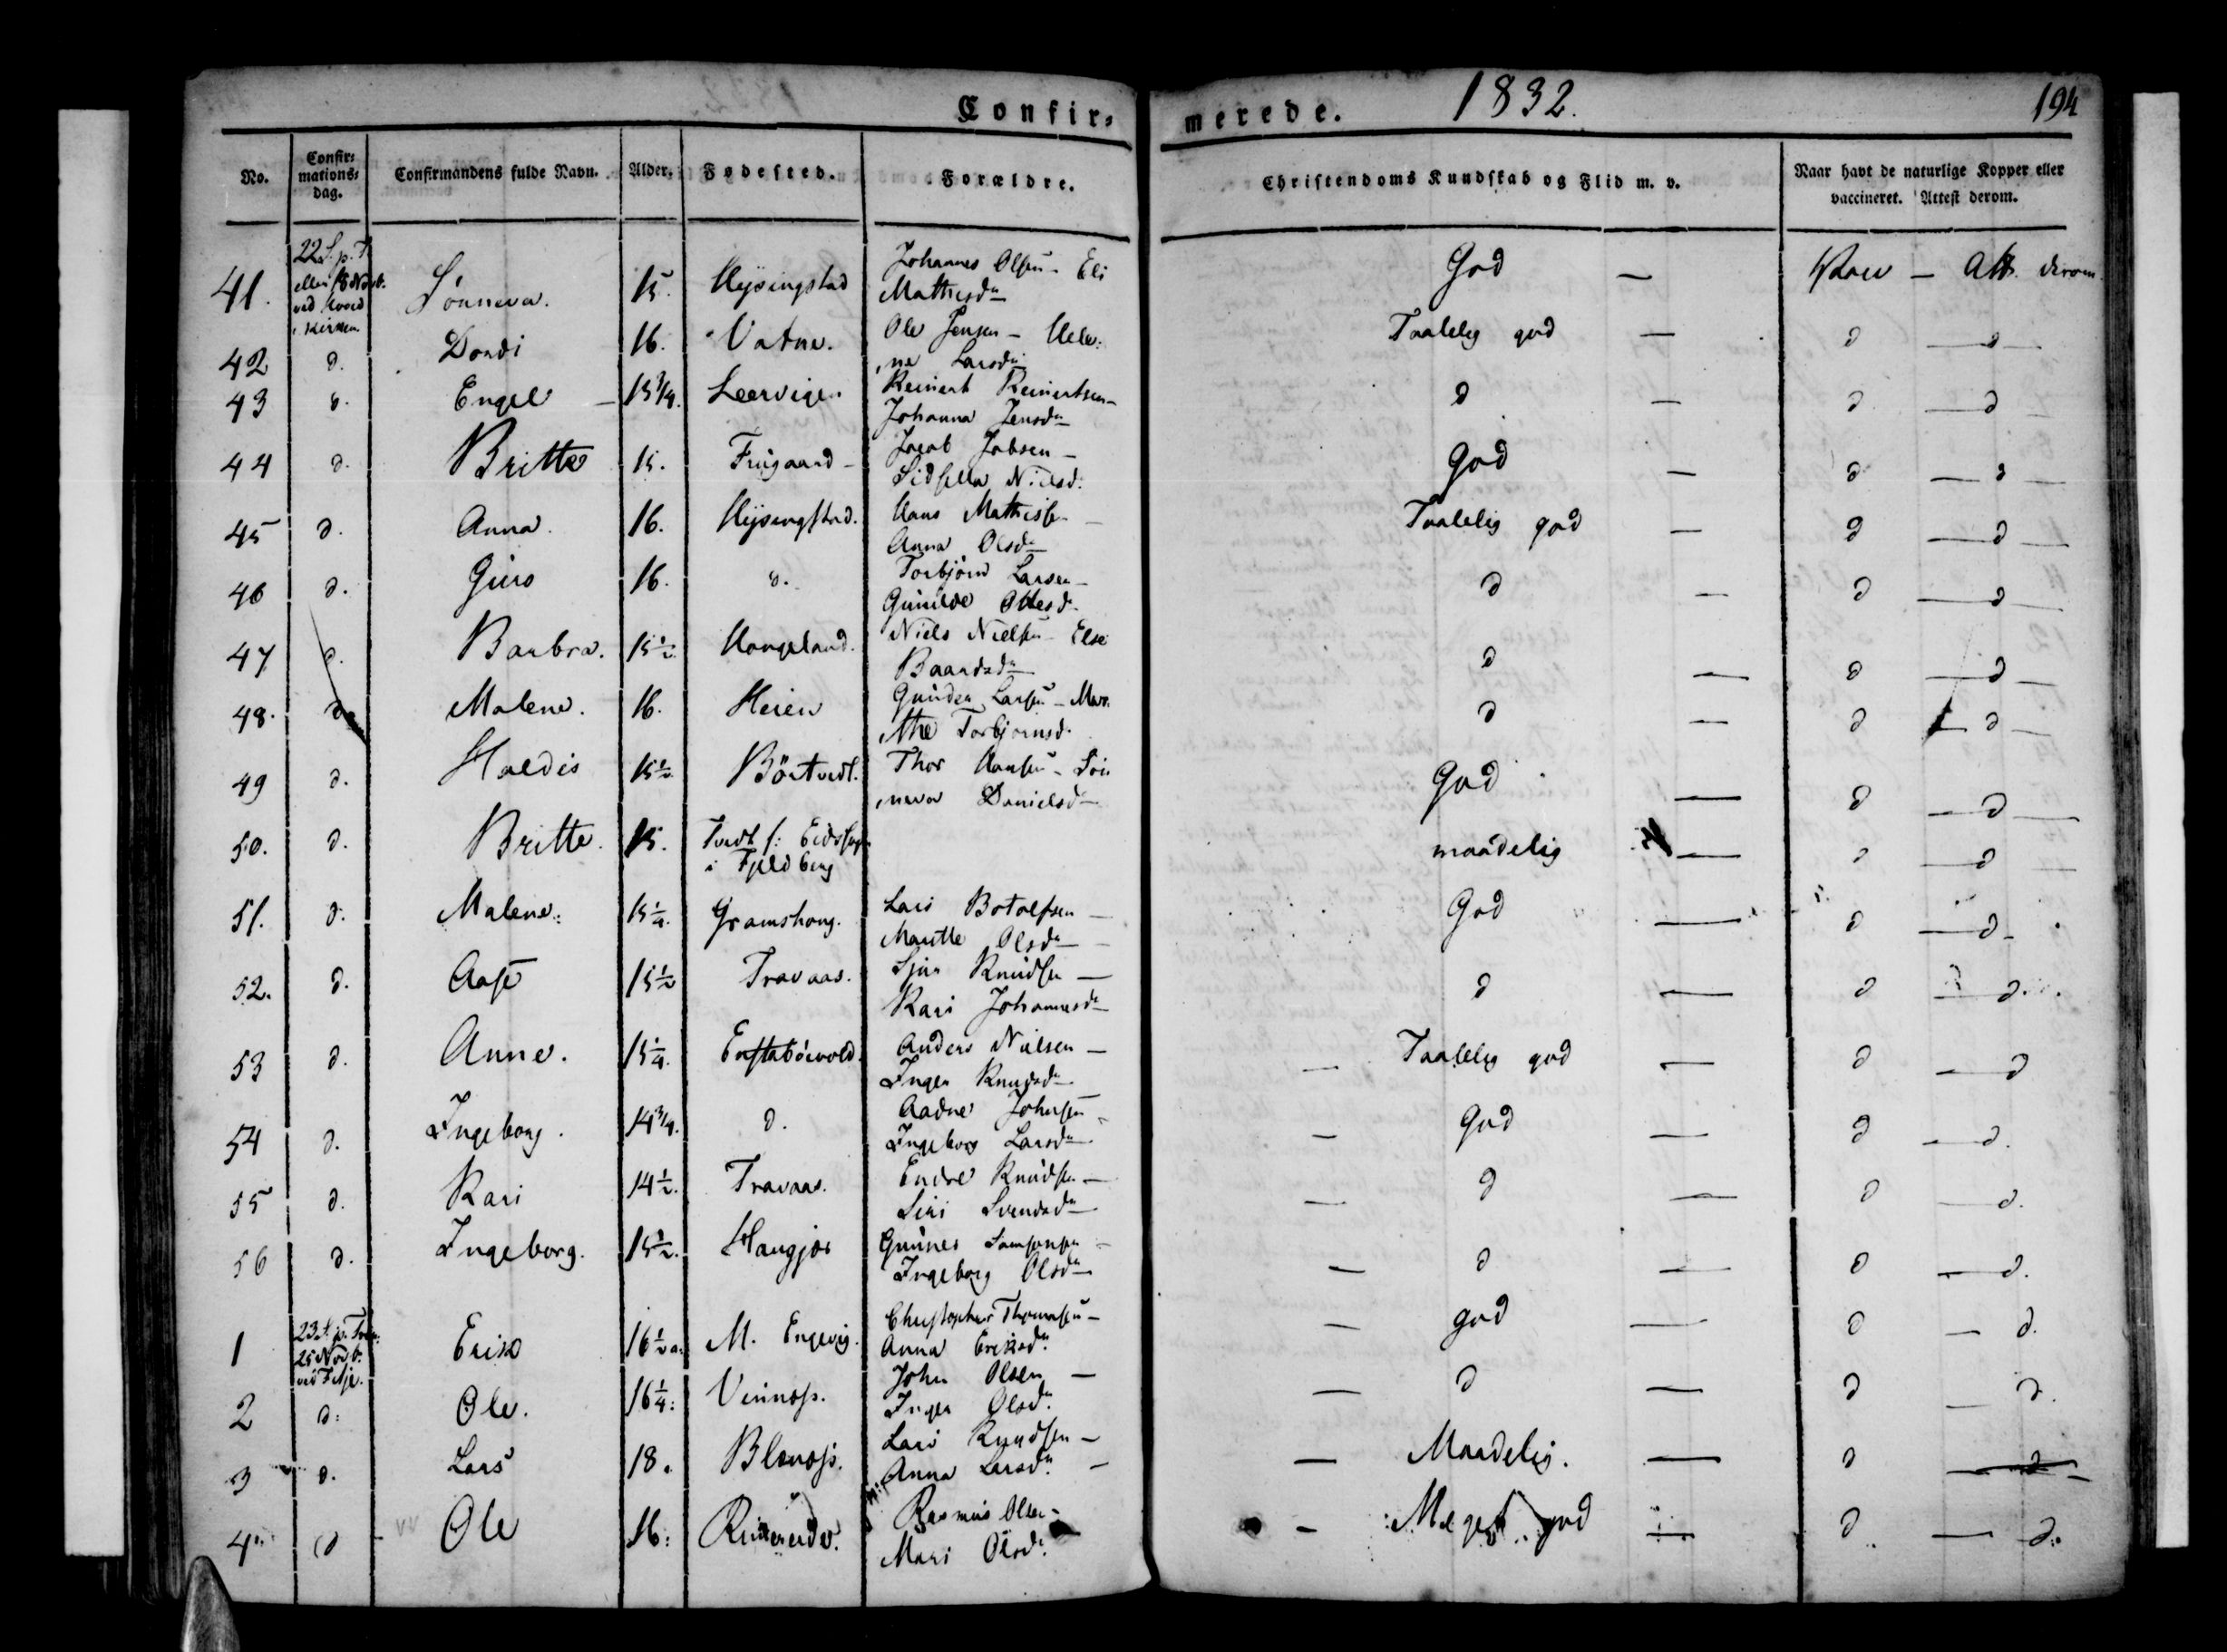 Confir-
merede. 1832. 194
No.
Confir-
mations-
dag.
Confirmandens fulde Navn. Alder. Fødested. Forældre.
Christendoms Kundskab og Flid m. v.
Naar havt de naturlige Kopper eller
vaccineret. Attest derom.
22 S. p. T.
eller 18 Novb.
ved hoved
kirken
41. Sönneva. 15 Hysingstad Johannes Olsen - Eli
Mathisdr God — Vacc — Att. derom
42 d. Dordi 16. Vatne. Ole Jensen - Hele:
ne Larsdr Taalelig god — d — d —
43 d. Engel 15 3/4. Leervigen Reinert Reinertsen -
Johanna Jensdr d — d — d —
44 d. Britte 15. Frugaard - Jacob Jobsen -
Sidsella Nielsd: God — d — d —
45 d. Anna. 16. Hysingstad. Hans Mathisse -
Anna Olsdr Taalelig god — d — d —
46 d. Guro 16. d. Torbjörn Larsen -
Gunilde Ottesd. d — d — d —
47 d. Barbra. 15 1/2 Haugeland. Niels Nielsen - Else
Baardsdr d — d — d —
48. d. Malene. 16. Heien Gunder Larsen - Mar:
the Torbjörnsd. d — d — d —
49 d. Haldis 15 1/2 Börtvedt. Thor Hansen - Sön
neva Danielsd God — d — d —
50. d. Britte. 15. Tvedt f:
i Fjeldberg maadelig — d — d
51. d. Malene. 15 1/4. Gramshoug. Lars Botolfsen —
Marthe Olsdr — God — d — d -
52. d. Aase 15 1/2 Travaas. Sjur Knudsen —
Kari Johannesdr d — d — d.
53 d. Anne. 15 1/4. Anders Nielsen —
Inger Knudsdr — Taalelig god — d — d
54 d. Ingeborg. 14 3/4. d. Aadne Johnsen -
Ingeborg Larsdr — God — d — d.
55 d. Kari 14 1/2. Travaas. Endre Knudsen —
Siri Svendsdr — d — d — d.
56 d. Ingeborg. 15 1/2. Haugjor Gunner Samsonsen -
Ingeborg Olsdr — d — d — d.
23 S. p. Trin:
25 Novb.
ved Fitje.
1 Erik 16 1/2 a: M. Engevig. Christopher Thomasen -
Anna Eriksdr — god — d — d.
2 d: Ole. 16 1/4: Vinnæs. John Olsen —
Inger Olsd: — d — d — d.
3 d. Lars 18. Blænæs. Lars Knudsen —
Anna Larsdr — Maadelig. — d — d —
4 d Ole 16: Rasmus Olsen -
Mari Olsdr. - Meget god — d — d.